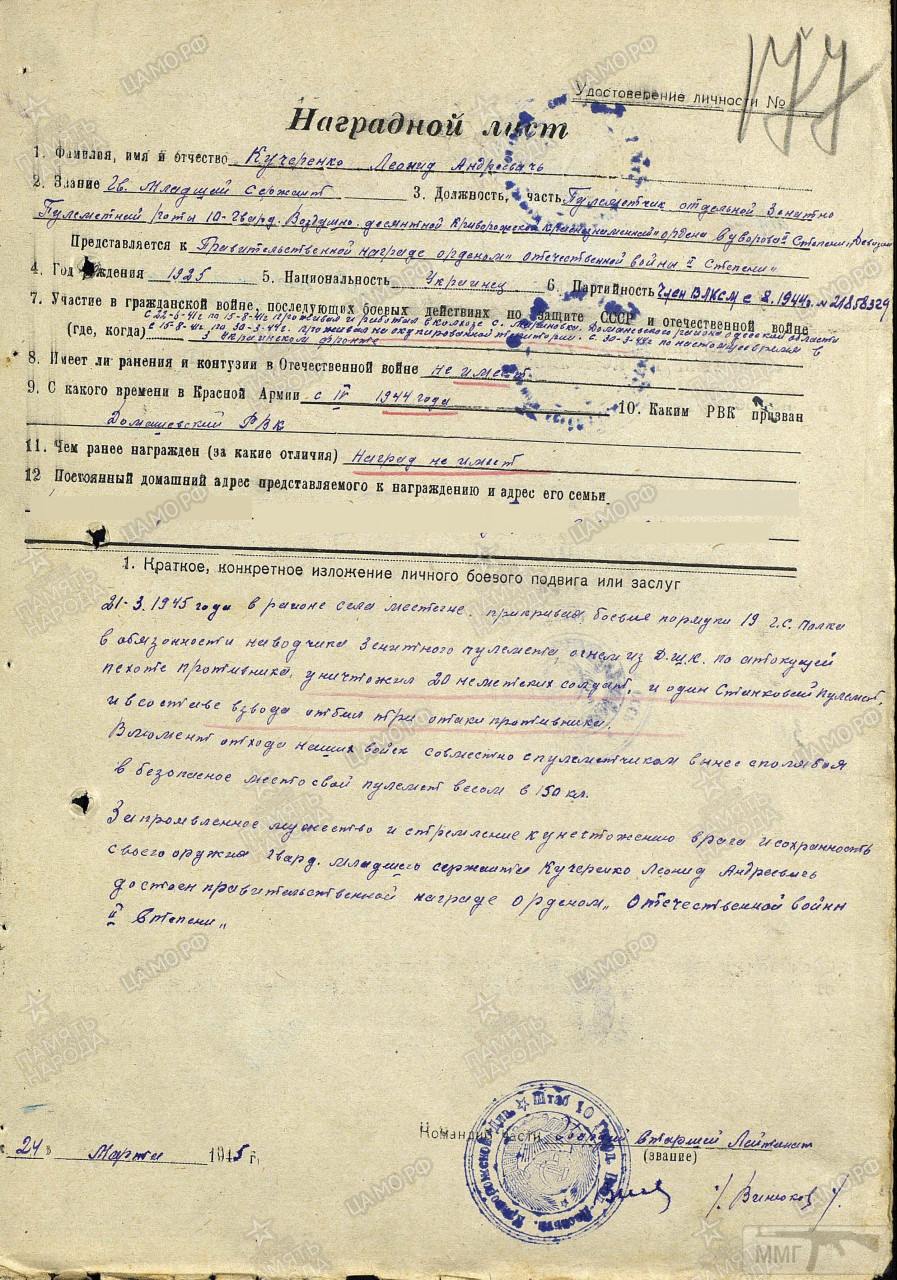 177
Удостоверение личности №
Наградной лист
1. Фамилия, имя и отчество Кучеренко Леонид Андреевичь
2. Звание Гв. Младший сержант 3. Должность, часть Пулеметчик отдельной Зенитно
Пулеметной роты 10-Гвард. Воздушно-десантной Криворожской Краснознаменной ордена Суворова II Степени Дивизии
Представляется к Правительственной награде орденом "отечественной войны II Степени"
4. Год рождения 1925 5. Национальность Украинец 6. Партийность Член ВЛКСМ с 8.1944г. № 21858329
7. Участие в гражданской войне, последующих боевых действиях по защите СССР и отечественной войне
с 22-6-41г по 15-8-41г проживал и работал в колхозе с. Мариновка Доманевского района одесской области
(где, когда) с 15-8-41г. по 30-3-44г. проживал на окупированной територии. с 30-3-44г по настоящее время в
3 Украинском фронте
8. Имеет ли ранения и контузии в Отечественной войне не имеет
9. С какого времени в Красной Армии с IV 1944 года 10. Каким РВК призван
Домашевский РВК
11. Чем ранее награжден (за какие отличия) Наград не имеет
12 Постоянный домашний адрес представляемого к награждению и адрес его семьи
1. Краткое, конкретное изложение личного боевого подвига или заслуг
21-3.1945 года в районе села местегне. прикривая боевые порядки 19 г.с. полка
в обязонности наводчика Зенитного пулемета огнем из Д.Ш.К. по атокущей
пехоте противника, уничтожил 20 неметских солдат, и один Станковый Пулемет,
и в составе взвода отбил три отаки противника.
В момент отхода наших войск совместно с пулеметчиком вынес с поля боя
в безопасное место свой пулемет весом в 150 кл.
За промвленное мужество и стремление к унестожению врага и сохранность
своего оружия Гвард. младшись сержанта Кучеренко Леонид Андреевичь
достоен правительственной награде орденом „Отечественной войны
II Степени„
24 Марта 1945 г.
Командир части Гвардий Старшей Лейтенант
(звание)
/. Винюков /.
Штаб 10 Гвард.
ЦАМО.РФ
ПАМЯТЬ НАРОДА
ММГ